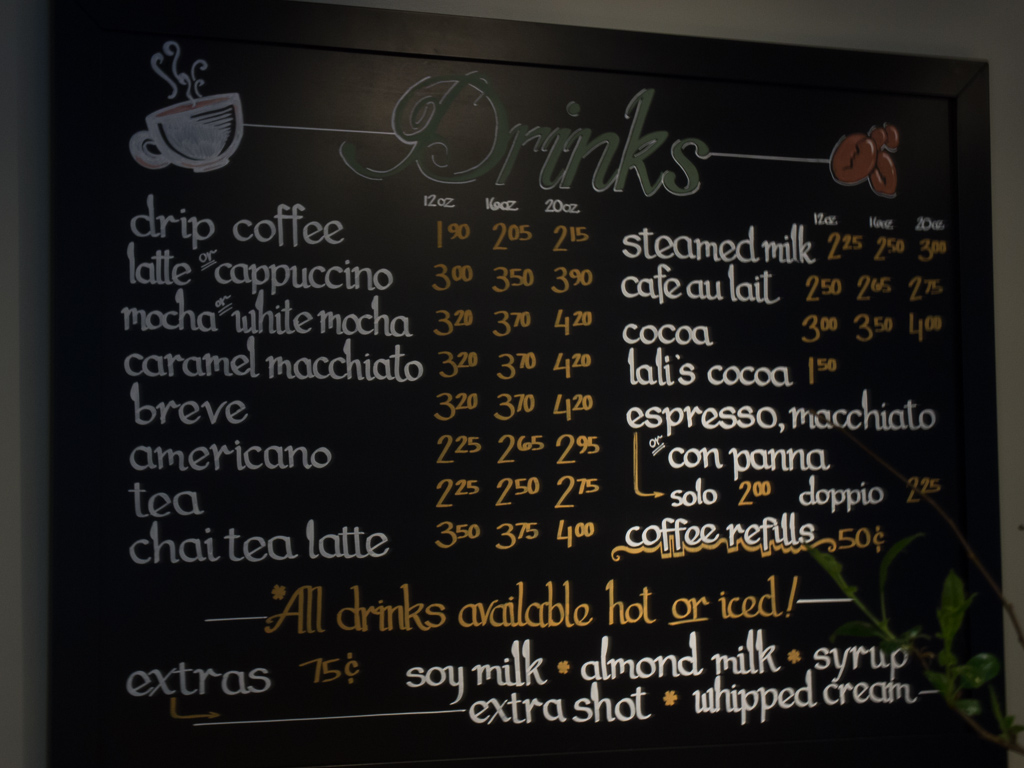 Drinks
12oz 16oz 20oz
drip coffee 1 90 2 05 2 15
latte or cappuccino 3 00 3 50 3 90
mocha or white mocha 3 20 3 70 4 20
caramel macchiato 3 20 3 70 4 20
breve 3 20 3 70 4 20
americano 2 25 2 65 2 95
tea 2 25 2 50 2 75
chai tea latte 3 50 3 75 4 00
12oz. 16oz. 20oz.
steamed milk 2 25 2 50 3 00
café au lait 2 50 2 65 2 75
cocoa 3 00 3 50 4 00
lali's cocoa 1 50
espresso, macchiato
or con panna
solo 2 00 doppio 2 25
coffee refills 50¢
*All drinks available hot or iced!
extras 75¢ soy milk * almond milk * syrup
extra shot * whipped cream